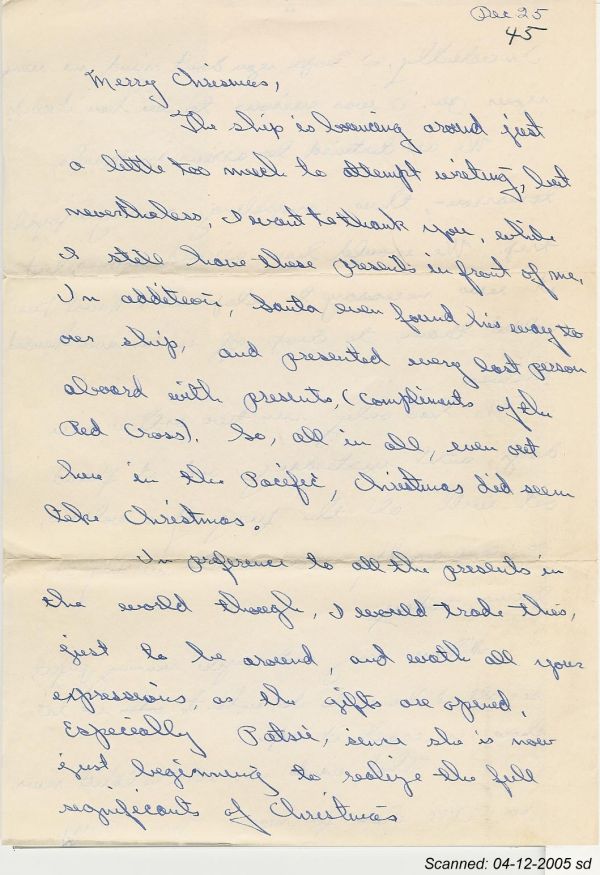 Dec 25
45
Merry Christmas,
The ship is bouncing around just
a little too much to attempt writing, but
nevertheless, I want to thank you, while
I still have these presents in front of me.
In addition, Santa even found his way to
our ship, and presented every last person
aboard with presents, (compliments of the
Red Cross). So, all in all, even out
here in the Pacific, Christmas did seem
like Christmas.
In preference to all the presents in
the world though, I would trade this,
just to be around, and watch all your
expressions, as the gifts are opened,
Especially Patsie, since she is now
just beginning to realize the full
significants of Christmas
Scanned: 04-12-2005 sd